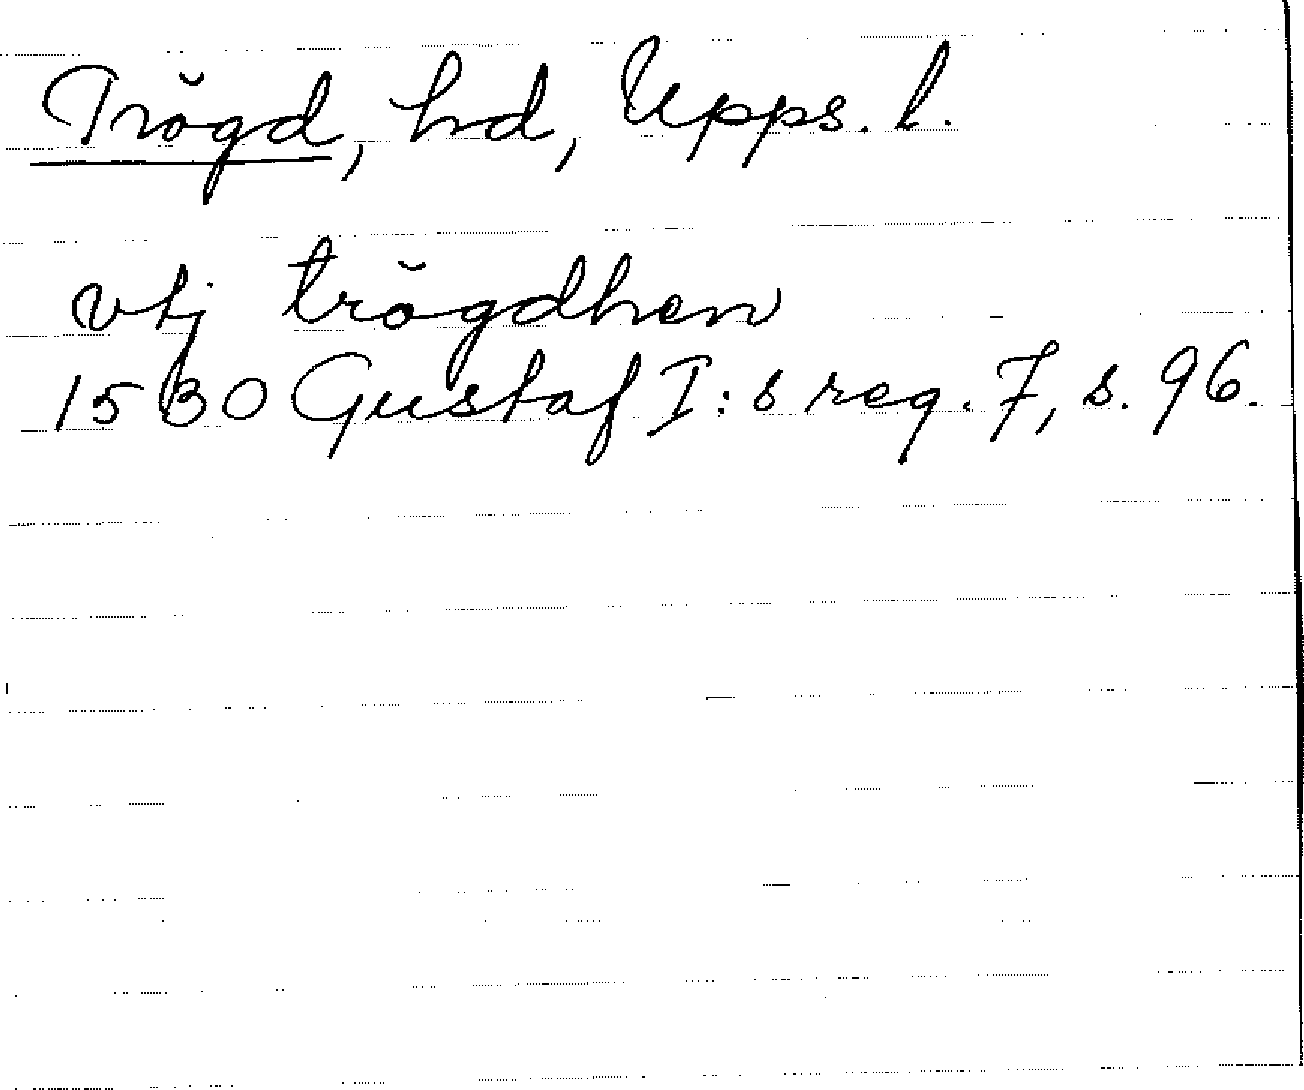 Trögd, hd, Upps. l.
vtj trögdhen
1530 Gustaf I:s reg. 7, s. 96.